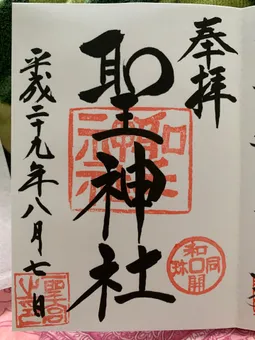 奉拝
聖神社
平成二十九年八月七日
和同開珎